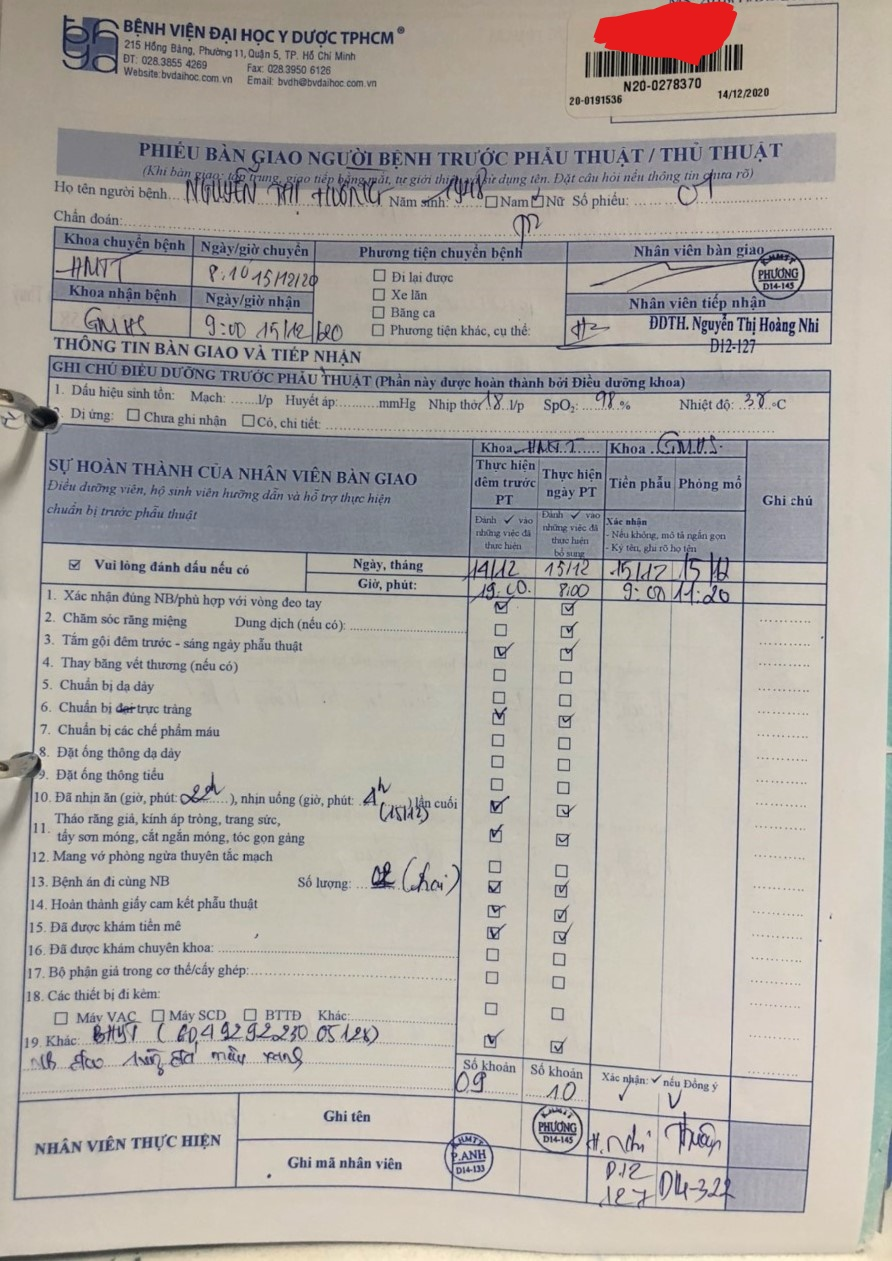 BỆNH VIỆN ĐẠI HỌC Y DƯỢC TPHCM®
215 Hồng Bàng, Phường 11, Quận 5, TP. Hồ Chí Minh
ĐT: 028.3855 4269 Fax: 028.3950 6126
Website: bvdaihoc.com.vn Email: bvdh@bvdaihoc.com.vn
N20-0278370
20-0191536 14/12/2020
PHIẾU BÀN GIAO NGƯỜI BỆNH TRƯỚC PHẪU THUẬT / THỦ THUẬT
(Khi bàn giao: tập trung, giao tiếp bằng mắt, tự giới thiệu và sử dụng tên. Đặt câu hỏi nếu thông tin chưa rõ)
Họ tên người bệnh NGUYỄN THỊ HƯƠNG Năm sinh: 1948 Nam Nữ Số phiếu: 01
Chẩn đoán:
Khoa chuyển bệnh Ngày/giờ chuyển Phương tiện chuyển bệnh Nhân viên bàn giao
HMTT 8.10 15/12/20 Đi lại được KHMTT PHƯƠNG D14-145
Khoa nhận bệnh Ngày/giờ nhận Xe lăn Nhân viên tiếp nhận
GMHS 9:00 15/12/2020 Băng ca ĐDTH. Nguyễn Thị Hoàng Nhi
Phương tiện khác, cụ thể: D12-127
THÔNG TIN BÀN GIAO VÀ TIẾP NHẬN
GHI CHÚ ĐIỀU DƯỠNG TRƯỚC PHẪU THUẬT (Phần này được hoàn thành bởi Điều dưỡng khoa)
1. Dấu hiệu sinh tồn: Mạch: l/p Huyết áp: mmHg Nhịp thở 18 l/p SpO₂: 98 % Nhiệt độ: °C
2. Dị ứng: Chưa ghi nhận Có, chi tiết:
Khoa HMTT Khoa GMHS
SỰ HOÀN THÀNH CỦA NHÂN VIÊN BÀN GIAO
Điều dưỡng viên, hộ sinh viên hướng dẫn và hỗ trợ thực hiện
chuẩn bị trước phẫu thuật
Thực hiện đêm trước PT Thực hiện ngày PT Tiền phẫu Phòng mổ Ghi chú
Đánh ✓ vào những việc đã thực hiện Đánh ✓ vào những việc đã thực hiện bổ sung Xác nhận
- Nếu không, mô tả ngắn gọn
- Ký tên, ghi rõ họ tên
☑ Vui lòng đánh dấu nếu có Ngày, tháng 14/12 15/12 15/12 15/12
Giờ, phút: 19:00 8:00 9:00 11:20
1. Xác nhận đúng NB/phù hợp với vòng đeo tay
2. Chăm sóc răng miệng Dung dịch (nếu có):
3. Tắm gội đêm trước - sáng ngày phẫu thuật
4. Thay băng vết thương (nếu có)
5. Chuẩn bị dạ dày
6. Chuẩn bị đại trực tràng
7. Chuẩn bị các chế phẩm máu
8. Đặt ống thông dạ dày
9. Đặt ống thông tiểu
10. Đã nhịn ăn (giờ, phút: 22h), nhịn uống (giờ, phút: 4h (15/12)) lần cuối
11. Tháo răng giả, kính áp tròng, trang sức,
tẩy sơn móng, cắt ngắn móng, tóc gọn gàng
12. Mang vớ phòng ngừa thuyên tắc mạch
13. Bệnh án đi cùng NB Số lượng: 02 (hai)
14. Hoàn thành giấy cam kết phẫu thuật
15. Đã được khám tiền mê
16. Đã được khám chuyên khoa:
17. Bộ phận giả trong cơ thể/cấy ghép:
18. Các thiết bị đi kèm:
Máy VAC Máy SCD BTTĐ Khác:
19. Khác: BHYT (GD4929223005128)
NB đeo
Số khoản 09 Số khoản 10 Xác nhận: ✓ nếu Đồng ý
NHÂN VIÊN THỰC HIỆN Ghi tên KHMTT PHƯƠNG D14-145 H.Nhi
Ghi mã nhân viên KHMTT P.ANH D14-133 D12 127 D14-322